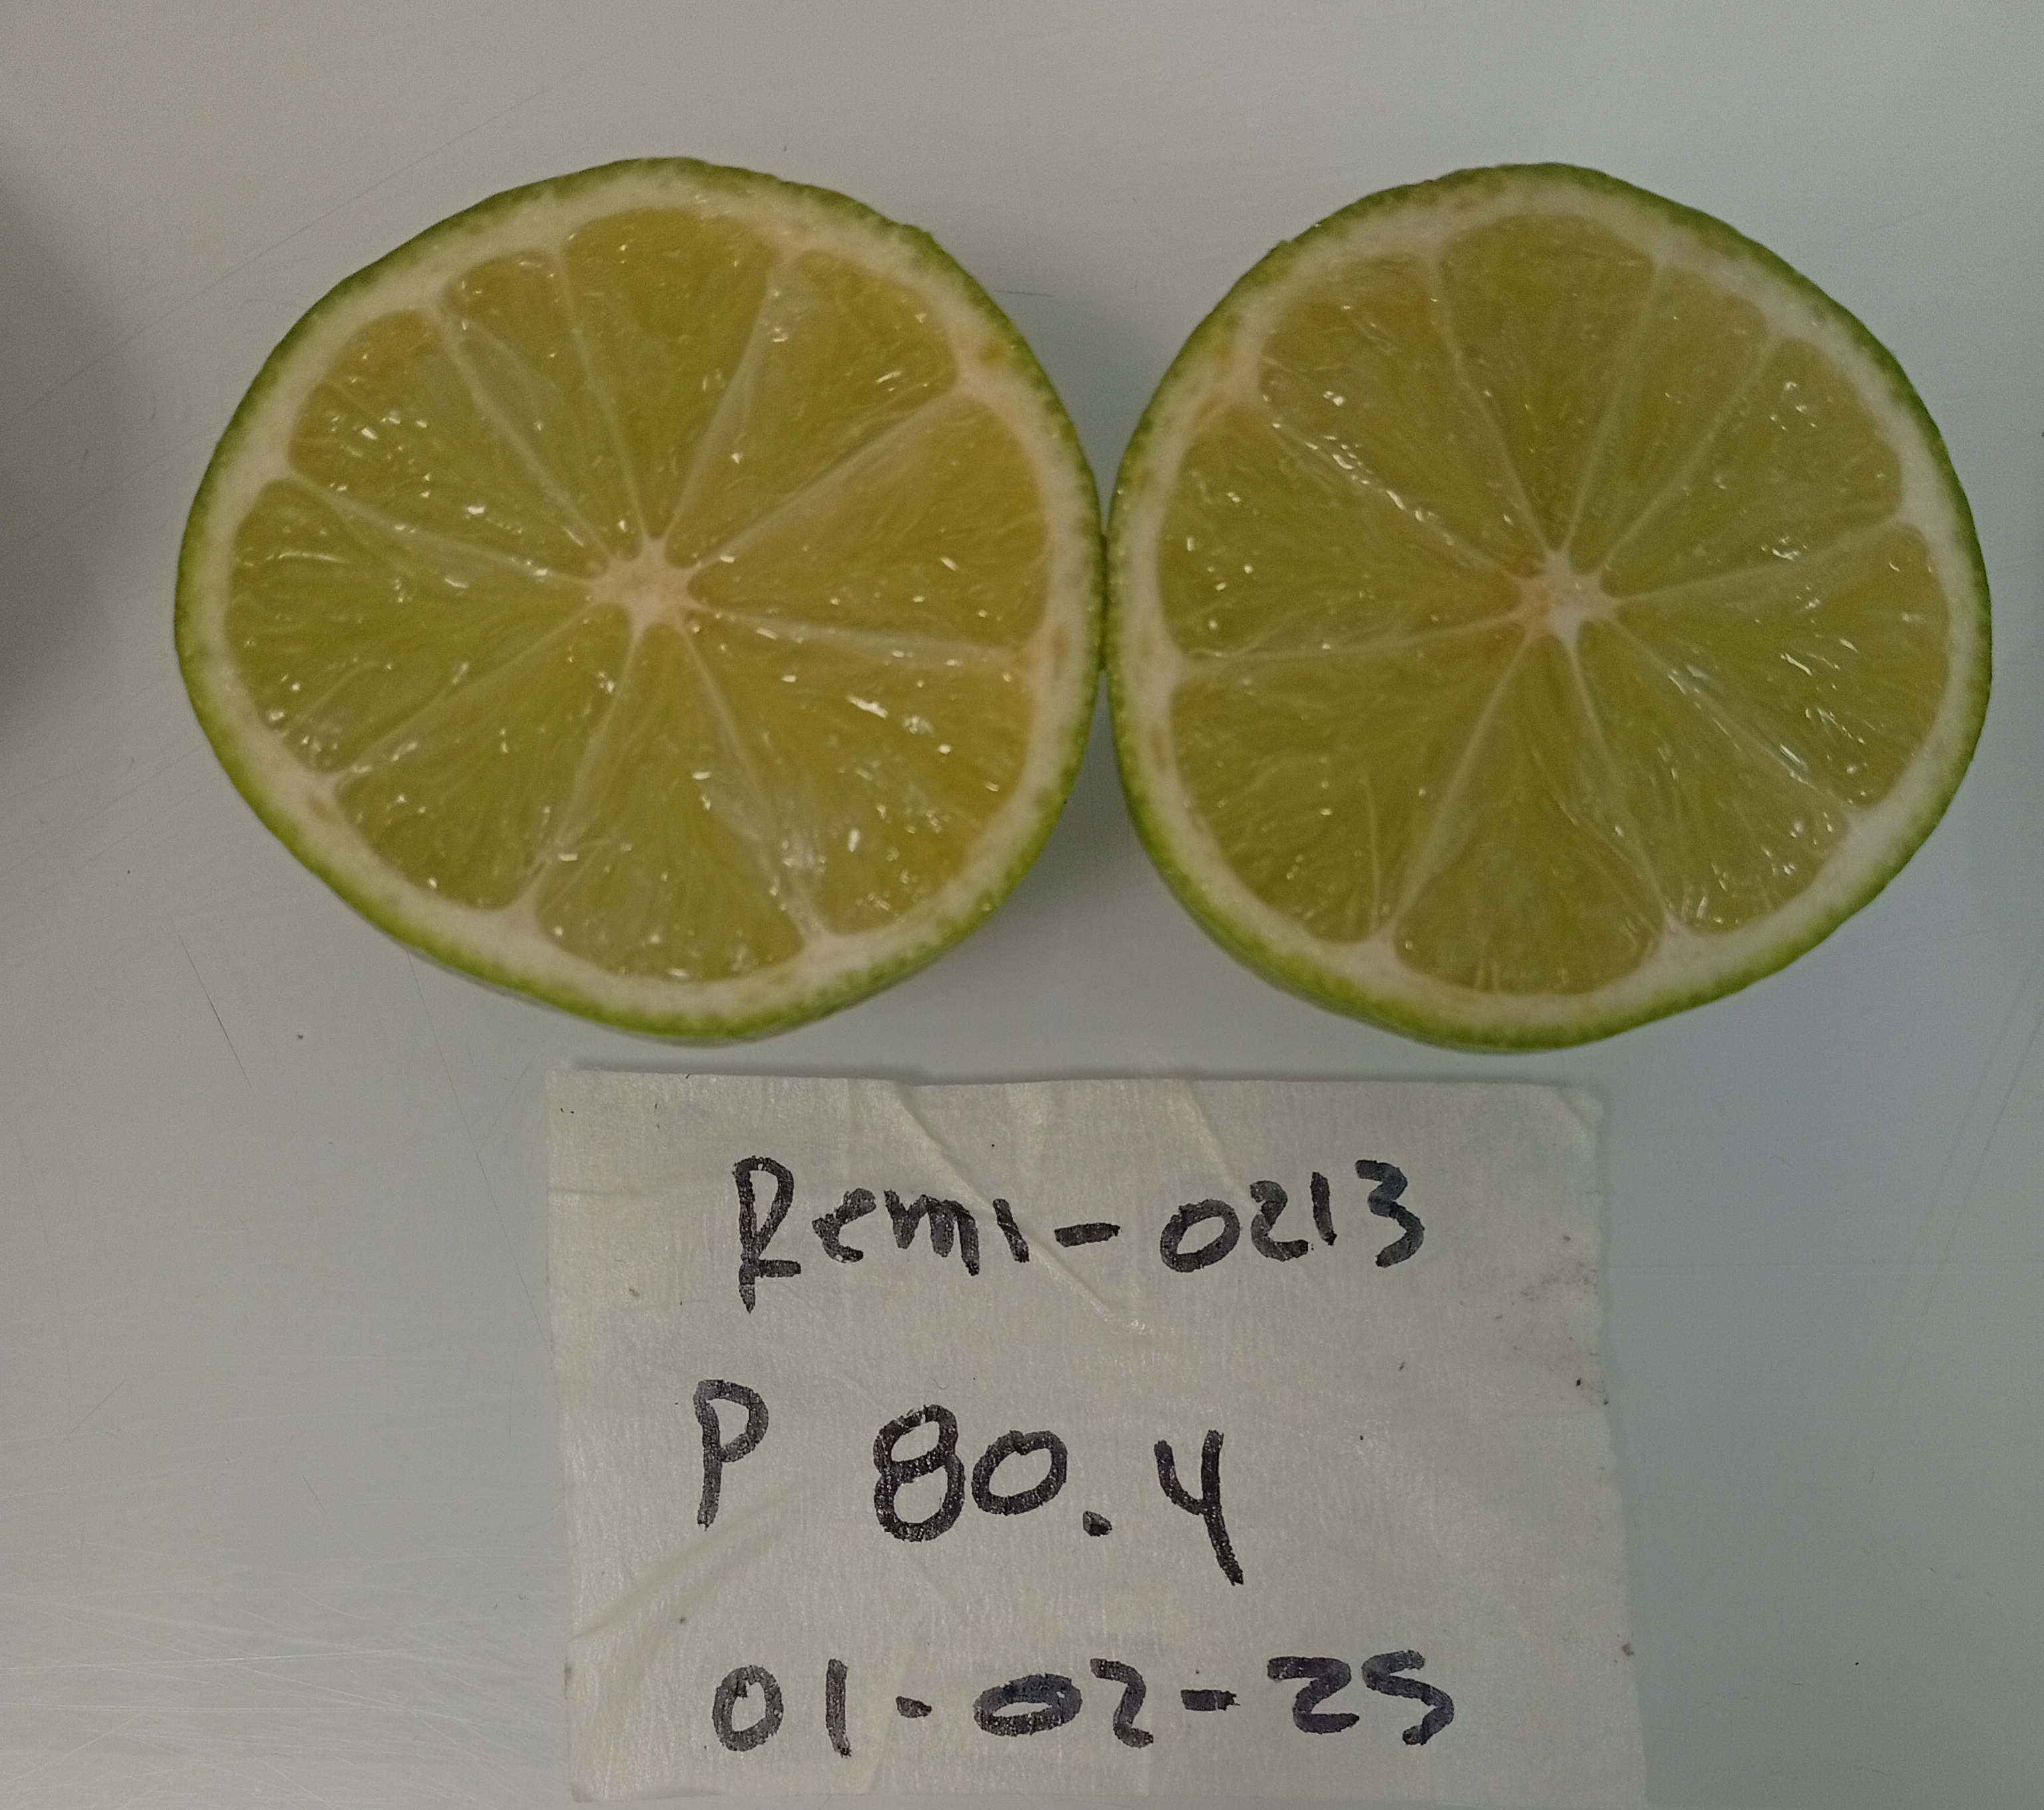 Remi-0213
P 80.4
01-02-25